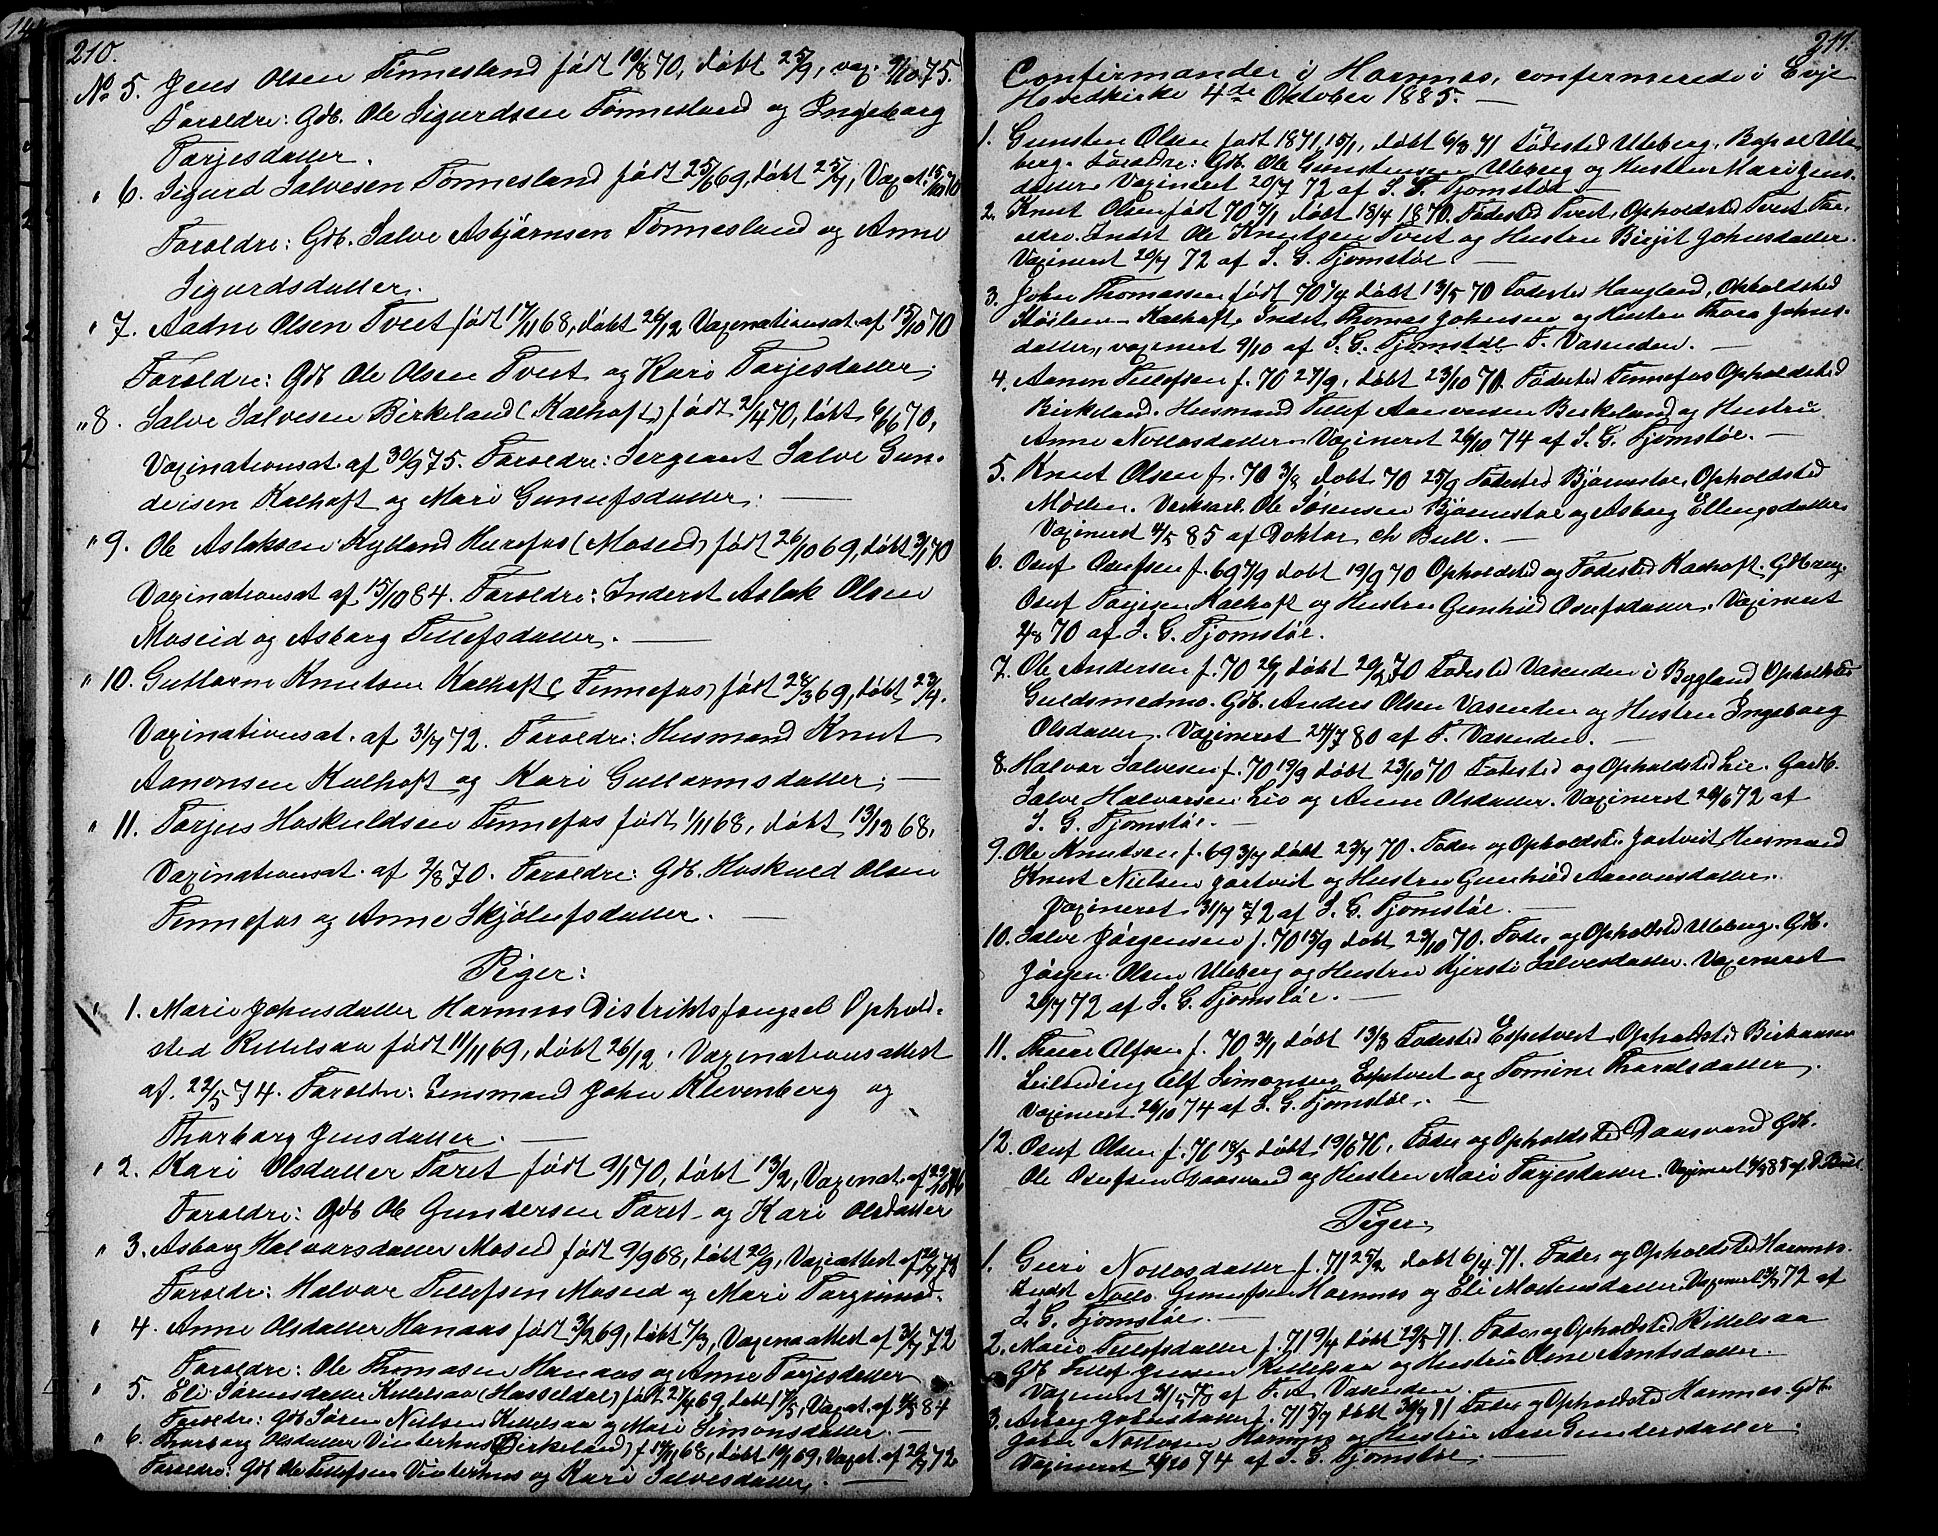 210.
No 5. Jens Olsen Tønnesland født 10/8 70, døbt 25/9, vax. 9/10 75.
Foreldre: Gdb. Ole Sigurdsen Tønnesland og Ingeborg
Tarjesdatter.
" 6. Sigurd Salvesen Tønnesland født 25/6 69, døbt 25/7, Vax.at. 15/10 70
Foreldre: Gdb. Salve Asbjørnsen Tønnesland og Anne
Sigurdsdatter.
" 7. Aadne Olsen Tveit født 17/11 68, døbt 26/12 Vaxinationsat. af 15/10 70
Foreldre: Gdb Ole Olsen Tveit og Kari Tarjesdatter.
" 8. Salve Salvesen Birkeland (Kalhoft) født 2/4 70, døbt 6/6 70,
Vaxinationsat. af 30/9 75. Foreldre: Sergeant Salve Gun-
dersen Kalhoft og Mari Gunufsdatter.
" 9. Ole Aslaksen Kylland Hurefos (Moseid) født 26/10 69, døbt 3/1 70
Vaxinationsat af 15/10 84. Foreldre: Inderst Aslak Olsen
Moseid og Asborg Tellefsdatter.
" 10. Guttorm Knutsen Kalhoft (Fennefos) født 28/3 69, døbt 23/4.
Vaxinationsat. af 31/7 72. Foreldre: Husmand Knut
Aanonsen Kalhoft og Kari Guttormsdatter.
" 11. Torjus Hoskuldsen Fennefos født 1/11 68, døbt 13/12 68.
Vaxinationsat. af 2/8 70. Foreldre: Gdb. Hoskuld Olsen
Fennefos og Anne Skjølufsdatter.
Piger:
" 1. Marie Johnsdatter Hornnes Distriktsfængsel Ophold-
sted Kittelsaa født 11/11 69, døbt 26/12, Vaxinationsattest
af. 22/5 74. Foreldre: Lensmand John Klevenberg og
Thorborg Jensdatter.
" 2. Kari Olsdatter Faret født 9/1 70, døbt 13/2, Vaxinat. af
Foreldre: Gdb Ole Gundersen Faret og Kari Olsdatter
" 3. Asborg Halvorsdatter Moseid født 9/9 68, døbt 20/9, Vaxiattest af
Foreldre: Halvor Tellefsen Moseid og Mari
" 4. Anne Olsdatter Hanaas født 3/2 69, døbt 7/3, Vaxinaattest af 31/7 72
Foreldre: Ole Thomasen Hanaas og Anne Tarjesdatter
" 5. Eli Sørensdatter Kittelsaa (Hasseldal) født 27/4 69, døbt 17/5, Vax.at. af 84
Foreldre: Gdb Søren Nielsen Kittelsaa og Mari Simonsdatter.
" 6. Thorborg Olsdatter Vinterhus (Birkeland) f. 68, døbt 10/1 69, Vax.at. af 72
Foreldre: Gdb Ole Tellefsen Vinterhus og Kari Salvesdatter.
211.
Confirmander i Hornnes, confirmerede i Evje
Hovedkirke 4de Oktober 1885.
1. Gunsten Olsen født 1871 15/1, døbt 6/3 71 Fødested Uleberg, Bopæl Ule-
berg. Foreldre: Gdb. Ole Gunstensen Uleberg og Hustru Mari Jens-
datter. Vaxineret 20/7 72 af S. G. Tjomstøl
2. Knut Olsen født 70 7/1 døbt 18/4 1870. Fødested Tveit, Opholdsted Tveit, For-
eldre. Indst Ole Knutsen Tveit og Hustru Birjit Johnsdatter.
Vaxineret 20/7 72 af S. G. Tjomstøl
3. John Thomassen født 70 døbt 13/5 70 Fødested Haugland, Opholdsted
Støilen Kalhoft. Indst Thomas Johnsen og Hustru Thora Johns-
datter, vaxineret 9/10 af S. G. Tjomstøl F. Vasenden.
4. Aanon Tellefsen f. 70 27/9, døbt 23/10 70. Fødested Fennefos Opholdsted
Birkeland. Husmand Tellef Aanonsen Birkeland og Hustru
Anne Nollosdatter. Vaxineret 26/10 74 af S. G. Tjomstøl.
5. Knut Olsen f. 70 3/8 døbt 70 25/9 Fødested Bjørnstøe, Opholdsted
Moen. Ole Sørensen Bjørnstøe og Asborg Ellingsdatter
Vaxineret 4/5 85 af Doktor ch Bull.
6. Osuf Osufsen f. 69 døbt 19/9 70 Opholdsted og Fødested Kalhoft. Gdb
Osuf Tarjesen Kalhoft og Hustru Gunhild Osufsdatter. Vaxineret
2/8 70 af S. G. Tjomstøl.
7. Ole Andersen f. 70 26/1, døbt 20/2 70 Fødested Vasenden i Bygland Opholdsted
Guldsmedmo. Gdb. Anders Olsen Vasenden og Hustru Ingeborg
Olsdatter. Vaxineret 24/7 80 af F. Vasenden.
8. Halvor Salvesen f. 70 19/9 døbt 23/10 70 Fødested og Opholdsted Lie. Gaardb.
Salve Halvorsen Lie og Anne Olsdatter. Vaxineret 20/6 72 af
S. G. Tjomstøl.
9. Ole Knutsen f. 69 døbt 23/7 70. Føde og Opholdsted Jortveit Husmand
Knut Nielsen Jortveit og Hustru Gunhild Aanonsdatter.
Vaxineret 31/7 72 af S. G. Tjomstøl.
10. Salve Jørgensen f. 70 15/9 døbt 23/10 70. Føde og Opholdsted Uleberg. Gdb.
Jørgen Olsen Uleberg og Hustru Kjersti Salvesdatter. Vaxineret
20/7 72 af S. G. Tjomstøl.
11. Alfsen f. 70 døbt 13/3 Fødested Espetveit, Opholdsted
Leilending Elf Simonsen Espetveit og Tomine Thoralsdatter.
Vaxineret 26/10 74 af S. G. Tjomstøl.
12. Osuf Olsen f. 70 18/5 døbt 19/6 70, Føde og Opholdsted Daasvand Gdb.
Ole Osufsen Daasvand og Hustru Mari Tarjesdatter. Vaxineret 85 af D. Bull.
Piger.
1. Guri Nollosdatter f. 71 25/2 døbt 6/4 71. Føde og Opholdsted Hornnes.
Indst Nollo Gunufsen Hornnes og Eli Mortensdatter Vaxineret 72 af
S. G. Tjomstøl.
2. Marie Tellefsdatter f. 71 9/4 døbt 29/5 71. Føde og Opholdsted Kittelsaa
Gdb Tellef Jensen Kittelsaa og Hustru Oline Arntsdatter.
Vaxineret af F. A Vasenden.
3. Asborg Johnsdatter f. 71 5/7 døbt 30/7 71 Føde og Opholdsted Hornnes. Gdb
John Nollosen Hornnes og Hustru Aase Gundersdatter.
Vaxineret 26/10 74 af S. G. Tjomstøl.